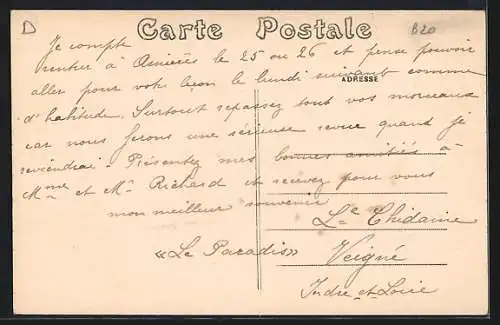 D
Carte Postale
B20
Je compte
rentrer à Asnières le 25 ou 26 et pense pouvoir
aller pour votre leçon le lundi suivant comme
ADRESSE
d'habitude. Surtout repassez tout vos morceaux
car nous ferons une sérieuse revue quand je
reviendrai. Présentez mes bonnes amitiés à
Mme et Mr Richard et recevez pour vous
mon meilleur souvenir
L-e
«Le Paradis» Veigné
Indre et Loire